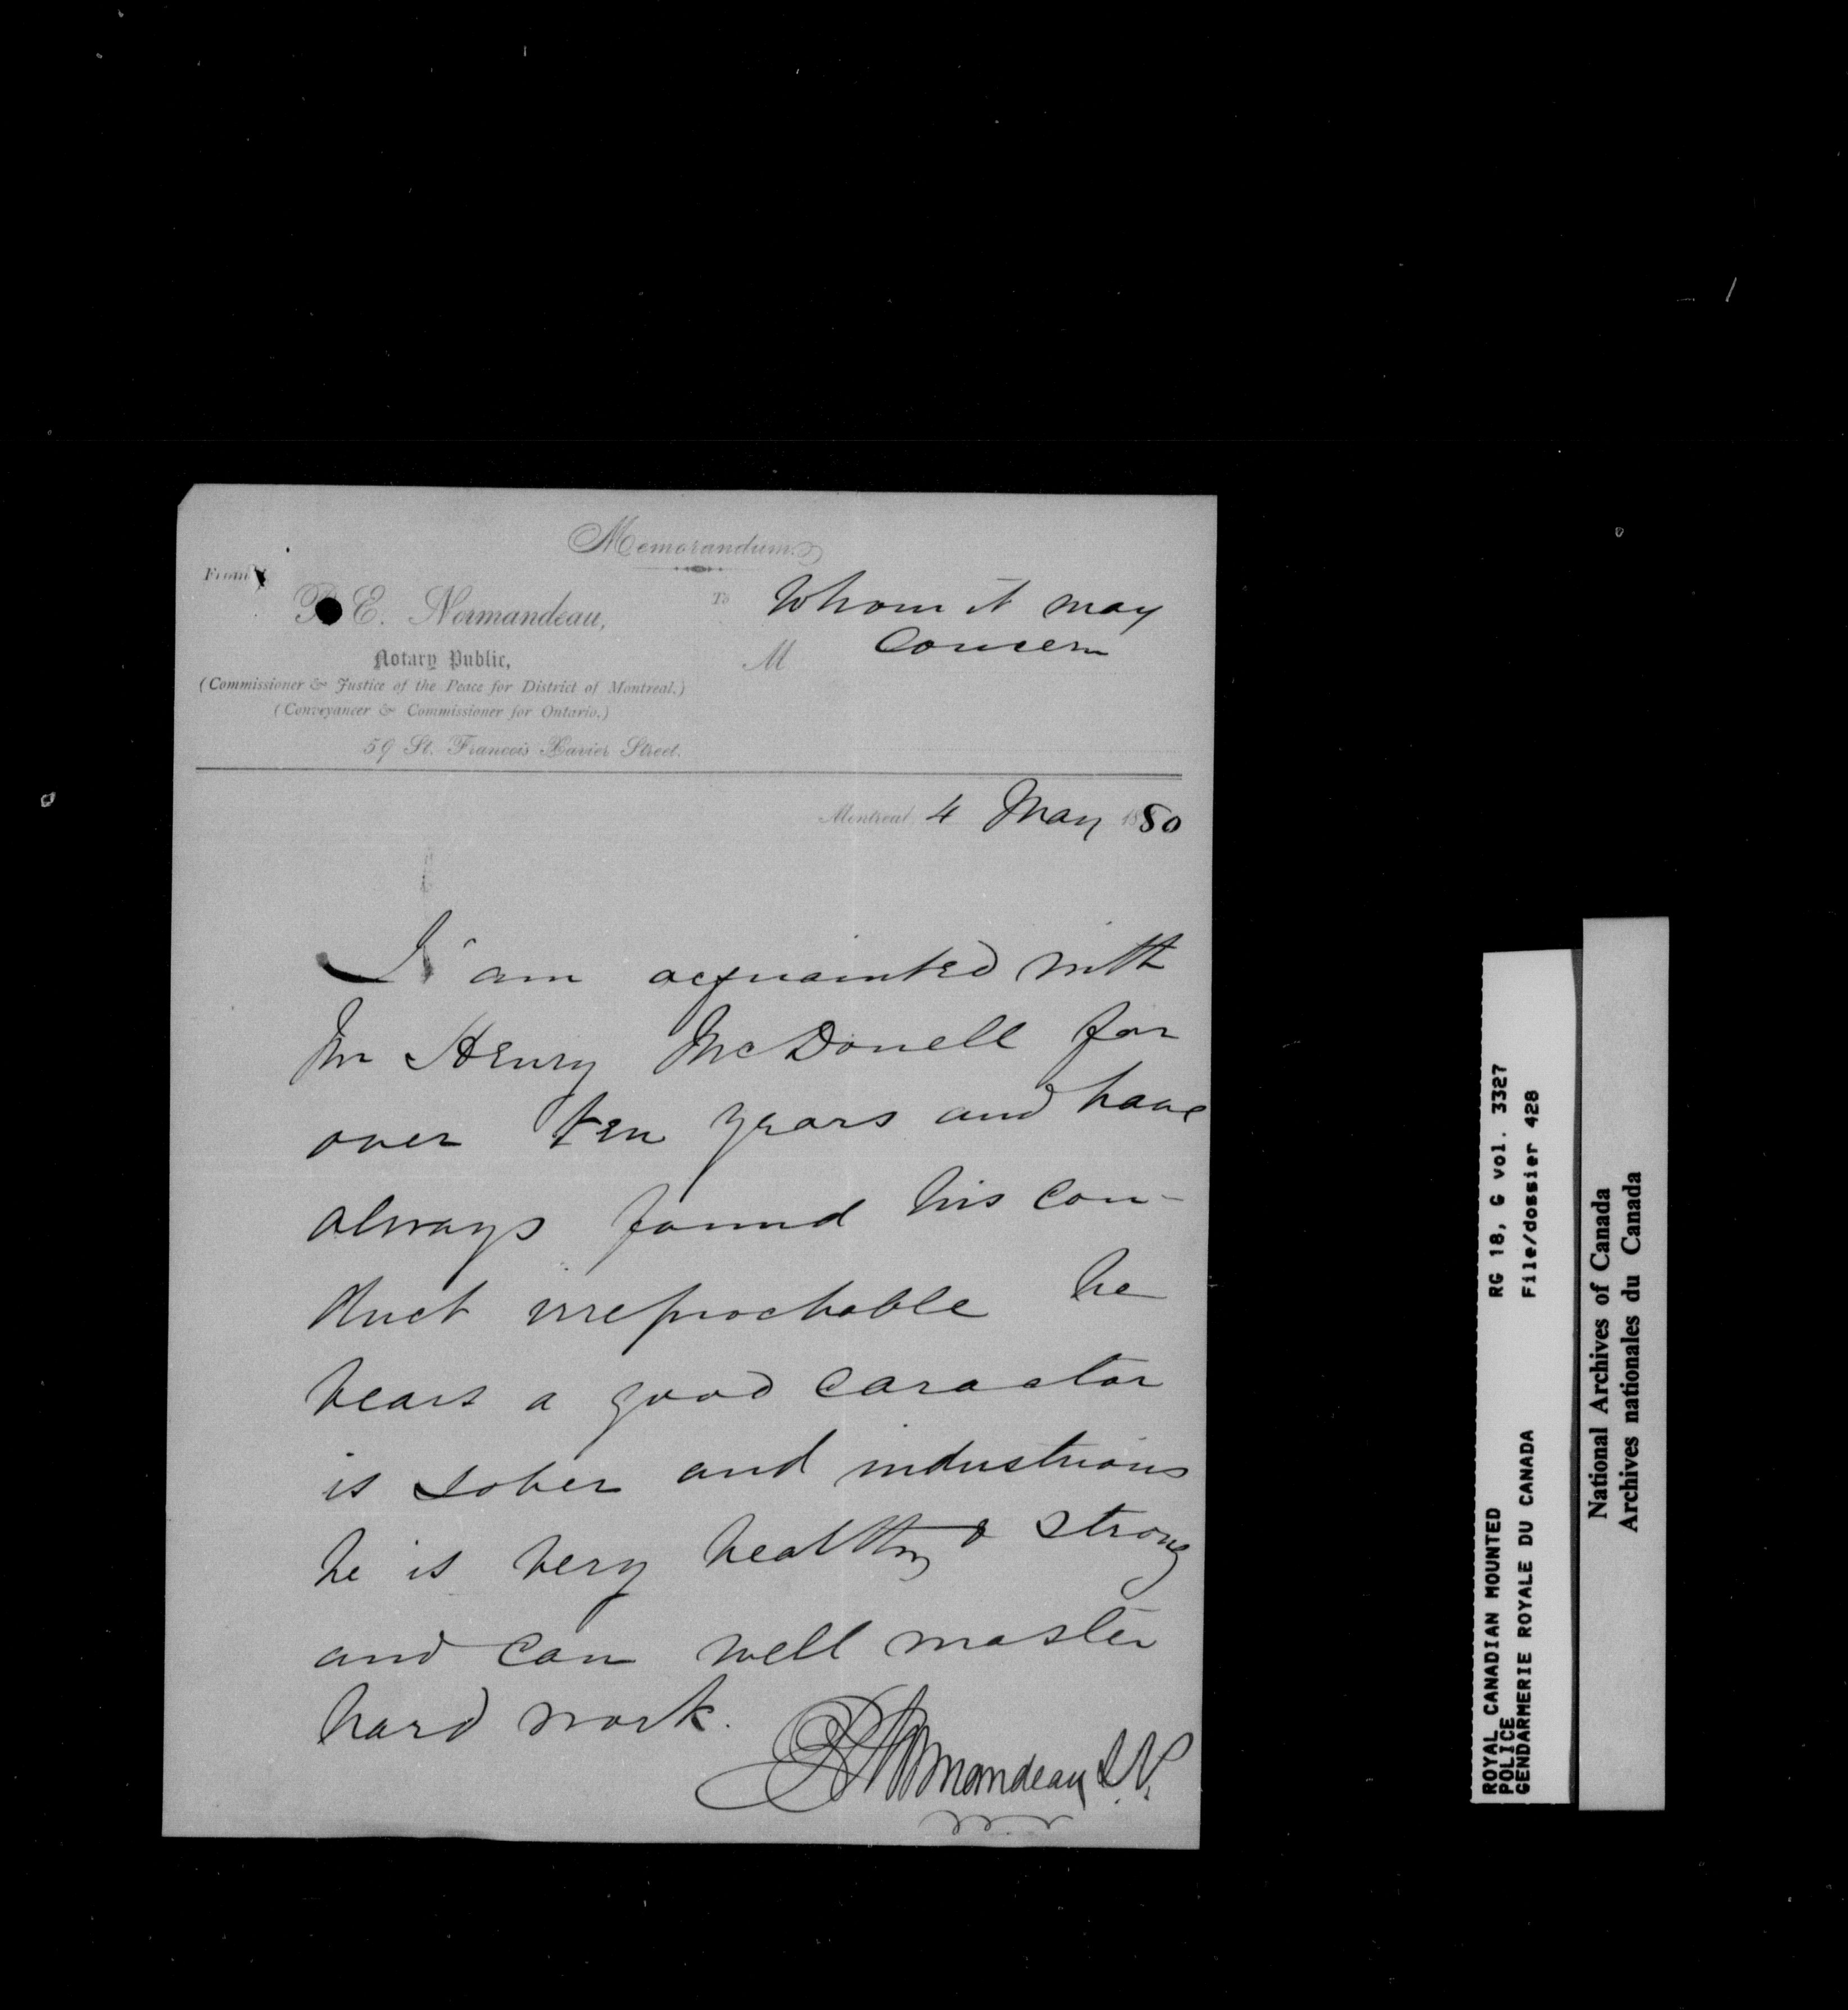 Memorandum.
From
P. E. Normandeau,
Notary Public,
(Commissioner & Justice of the Peace for District of Montreal.)
(Conveyancer & Commissioner for Ontario.)
59 St. Francois Xavier Street.
To Whom it may
M Concern
Montreal, 4 May 1880
I am acquainted with
Mr Henry McDonell for
over ten years and have
always found his con-
duct irreprochable he
bears a good caractar
is sober and industrious
he is very healthy & strong
and can well master
hard work.
Normandeau
ROYAL CANADIAN MOUNTED
POLICE
GENDARMERIE ROYALE DU CANADA
RG 18, G vol. 3327
File/dossier 428
National Archives of Canada
Archives nationales du Canada